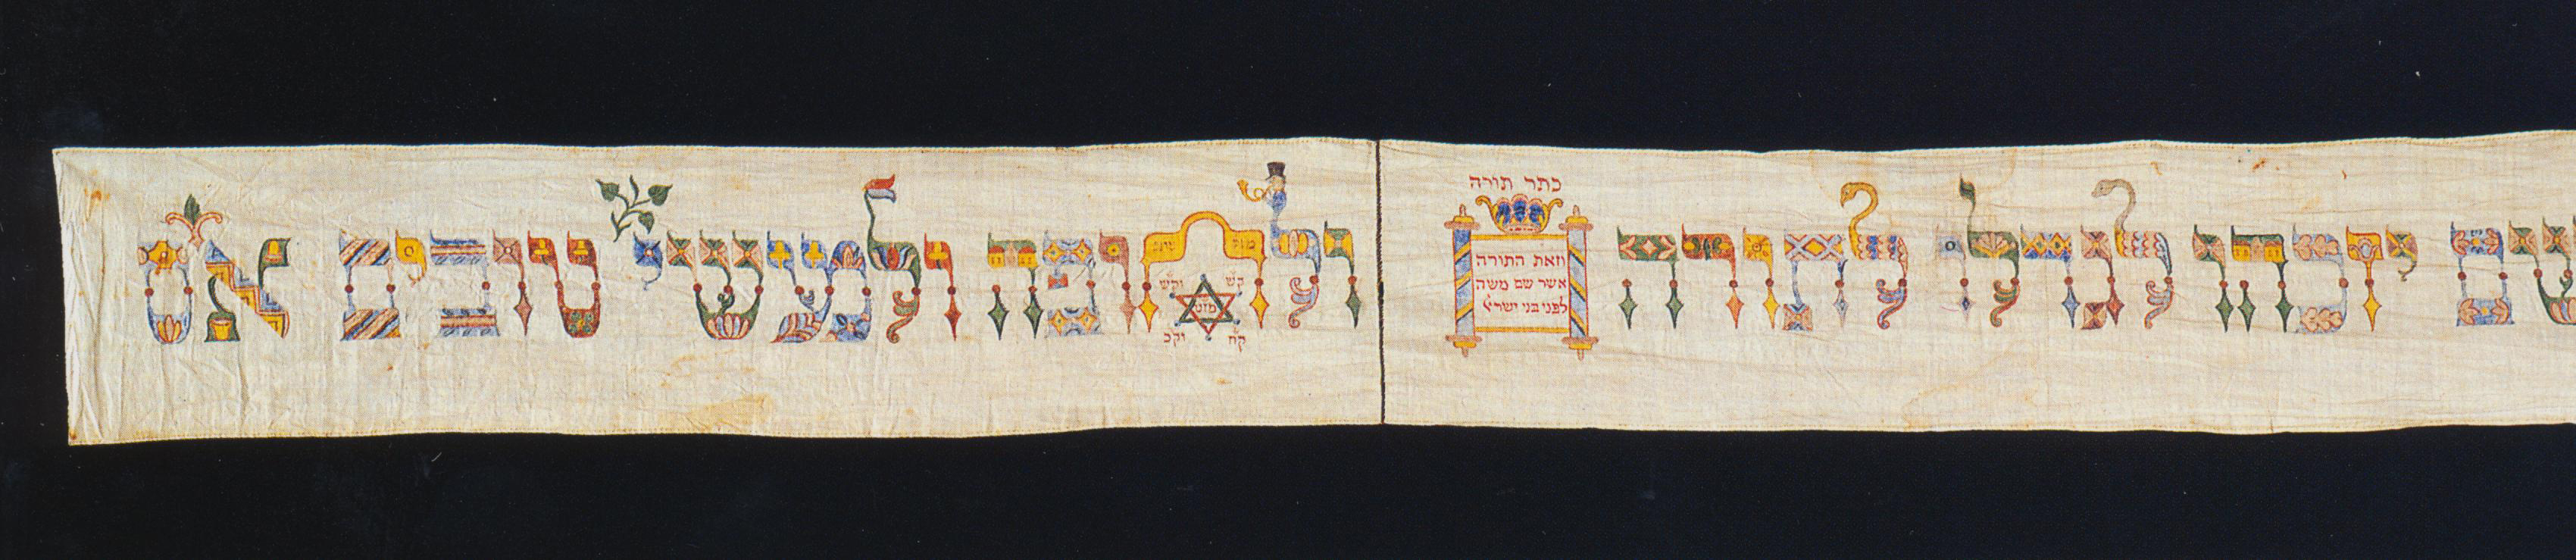 שם יזכהו לגדלו לתורה
כתר תורה
וזאת התורה
אשר שם משה
לפני בני ישראל
ולחופה ולמעשי טובים אס
קש וקש
קח וקכ